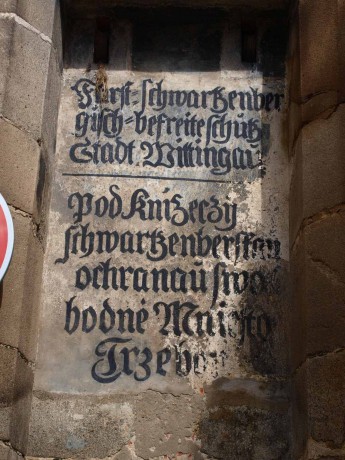 Fürst=schwartzenber
gisch=befreite schutz
Stadt Wittingau
Pod Knižeczy
schwartzenberskau
ochranau swo
bodné Miesto
Trzebon